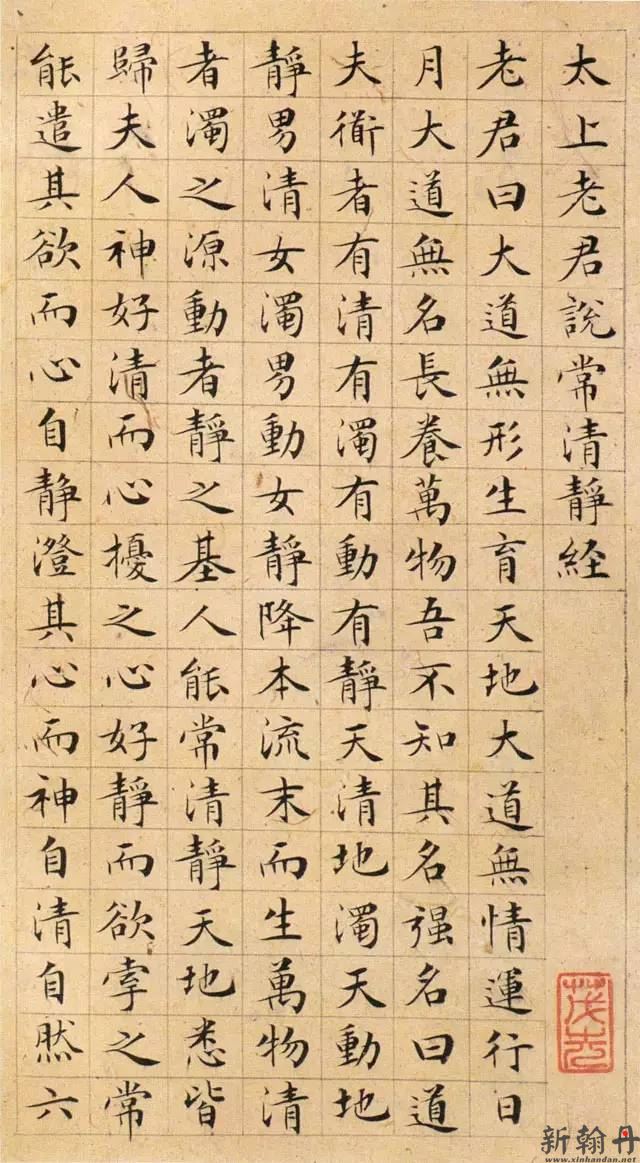 太上老君說常清靜経
老君曰大道無形生育天地大道無情運行日
月大道無名長養萬物吾不知其名强名曰道
夫衜者有清有濁有動有靜天清地濁天動地
靜男清女濁男動女靜降本流末而生萬物清
者濁之源動者靜之基人能常清靜天地悉皆
歸夫人神好清而心擾之心好靜而欲牽之常
能遣其欲而心自静澄其心而神自清自然六
新翰丹
www.xinhandan.net